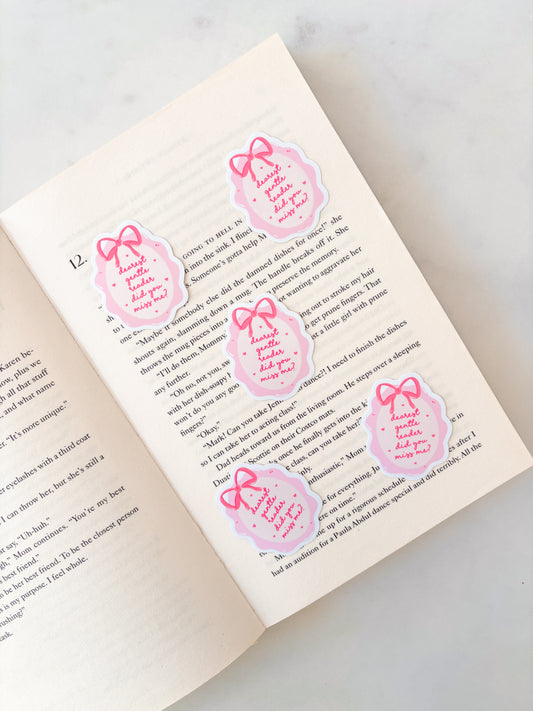 Karen be-
now, plus we
h all that stuff
and what name
"It's more unique."
eyelashes with a third coat
I can throw her, but she's still a
at say, "Uh-huh."
gh," Mom continues. "You're my best
s best friend."
o be her best friend. To be the closest person
is is my purpose. I feel whole.
rushing!"
task.
12.
GOING TO HELL IN
into the sink. I flinch
Someone's gotta help M
"Maybe if somebody else did the damned dishes for once!" she
shouts again, slamming down a mug. The handle breaks off. She
throws the mug pieces into
preserve the memory.
"I'll do them, Mommy
not wanting to aggravate her
any further.
"Oh no, not you, sw
ing out to stroke my hair
with her dish-soapy
to get prune fingers. That
won't do you any goo
t a little girl with prune
fingers?"
"Okay."
"Mark! Can you take Jen
dance? I need to finish the dishes
so I can take her to acting class!"
Dad heads toward us from the living room. He steps over a sleeping
Scottie on their Costco mats.
once he finally gets into the k
class, can you take her?"
enthusiastic," Mom
for everything. Ju
were on time."
me up for a rigorous schedule
classes after I
had an audition for a Paula Abdul dance special and did terribly. All the
dearest
gentle
reader
did you
miss me?
dearest
gentle
reader
did you
miss me?
dearest
gentle
reader
did you
miss me?
dearest
gentle
reader
did you
miss me?
dearest
gentle
reader
did you
miss me?